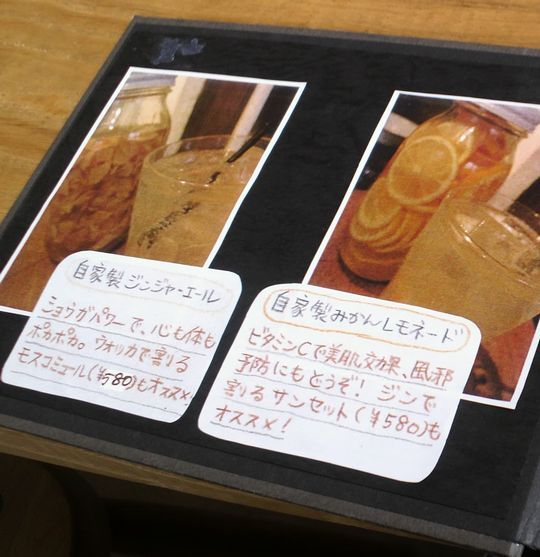 自家製ジンジャーエール
ショウガパワーで、心も体も
ポカポカ。ウォッカで割る
モスコミュール(¥580)もオススメ!
自家製みかんレモネード
ビタミンCで美肌効果、風邪
予防にもどうぞ! ジンで
割るサンセット(¥580)も
オススメ!